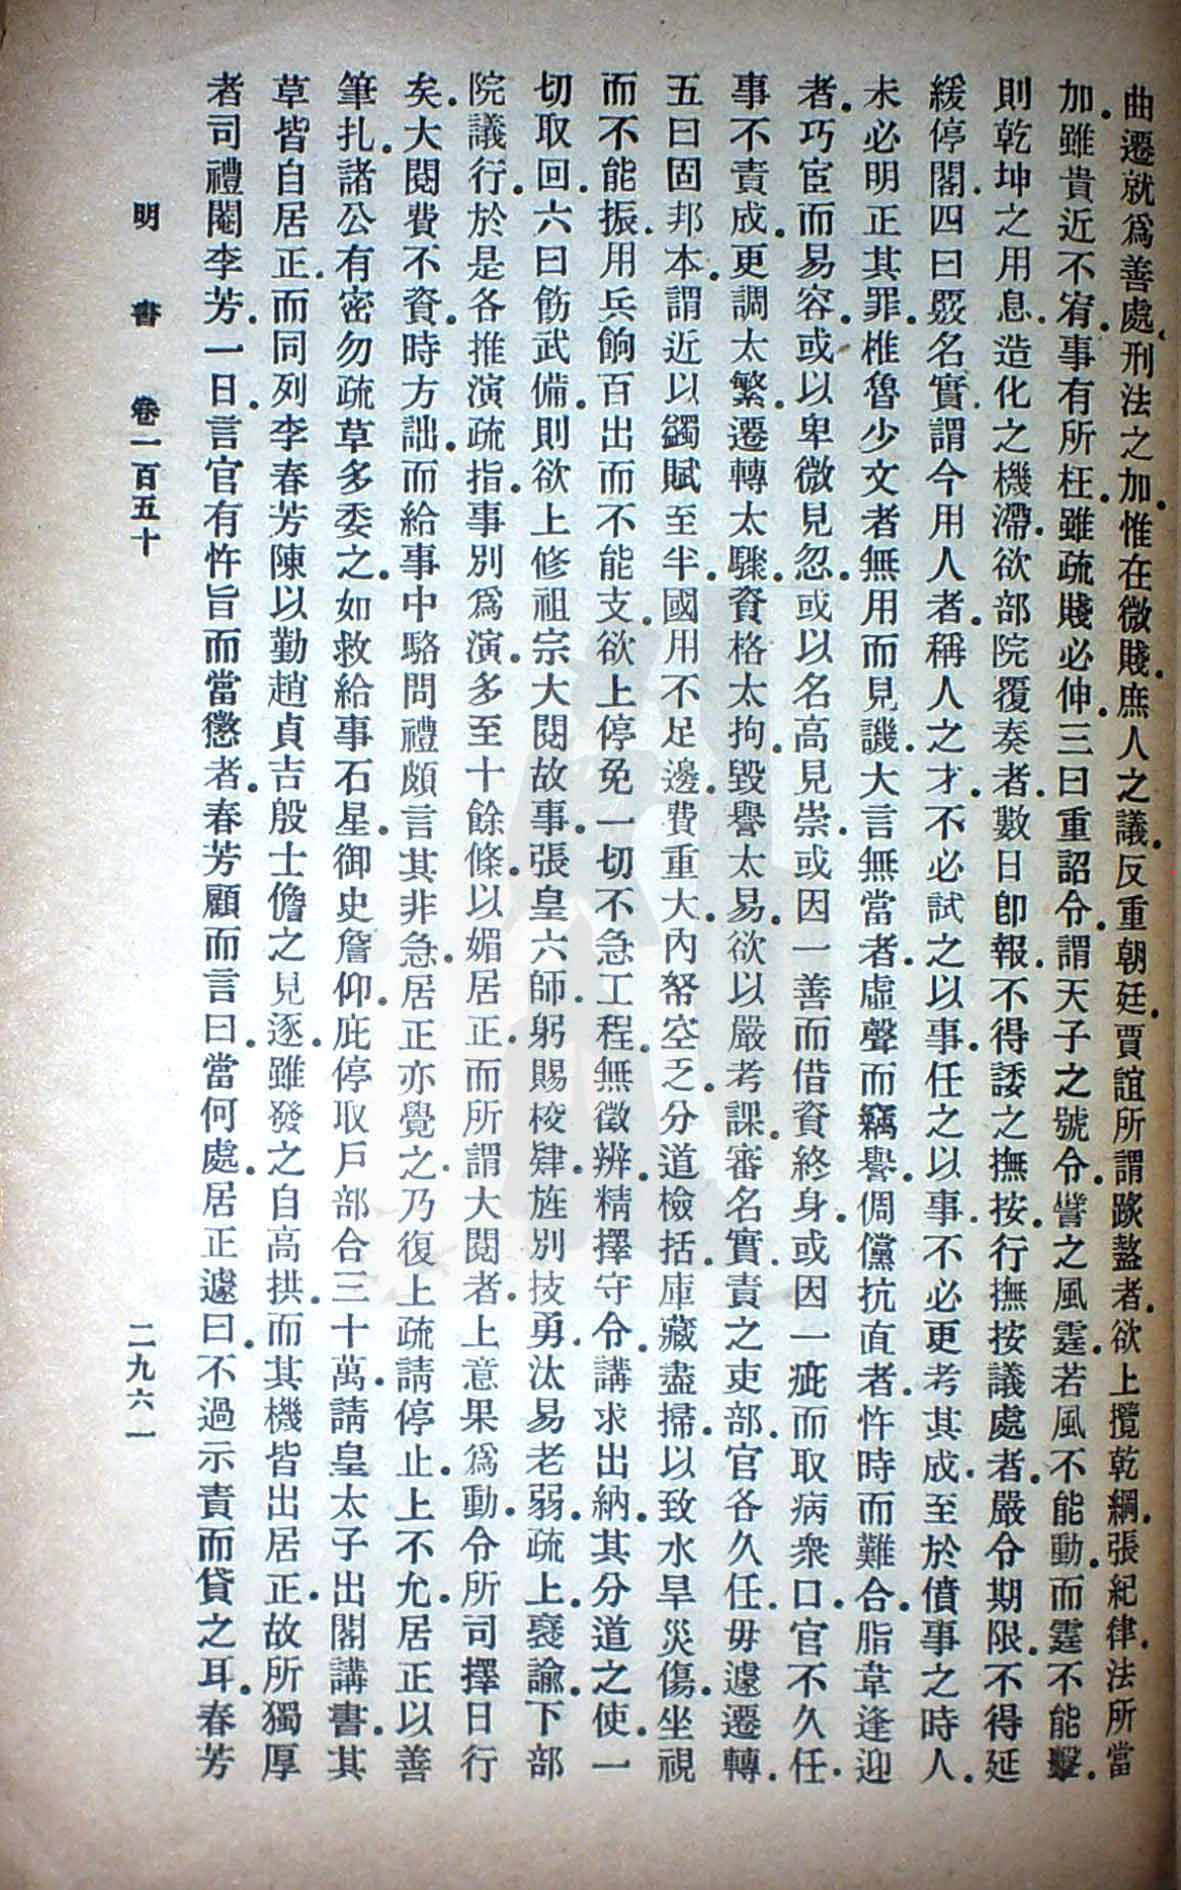 曲遷就爲善處刑法之加惟在微賤庶人之議反重朝廷賈誼所謂踀盭者欲上攬乾綱張紀律法所當
加雖貴近不宥事有所枉雖疏賤必伸三曰重詔令謂天子之號令譬之風霆若風不能動而霆不能擊
則乾坤之用息造化之機滯欲部院覆奏者數日卽報不得諉之撫按行撫按議處者嚴令期限不得延
緩停閣四曰覈名實謂今用人者稱人之才不必試之以事任之以事不必更考其成至於僨事之時人
未必明正其罪椎魯少文者無用而見譏大言無當者虛聲而竊譽倜儻抗直者忤時而難合脂韋逢迎
者巧宦而易容或以卑微見忽或以名高見崇或因一善而借資終身或因一疵而取病衆口官不久任
事不責成更調太繁遷轉太驟資格太拘毀譽太易欲以嚴考課審名實責之吏部官各久任毋遽遷轉
五曰固邦本謂近以蠲賦至半國用不足邊費重大內帑空乏分道檢括庫藏盡掃以致水旱災傷坐視
而不能振用兵餉百出而不能支欲上停免一切不急工程無徵辨精擇守令講求出納其分道之使一
切取回六曰飭武備則欲上修祖宗大閱故事張皇六師躬賜棱肄旌別技勇汰易老弱疏上襃諭下部
院議行於是各推演疏指事別爲演多至十餘條以媚居正而所謂大閱者上意果爲動令所司擇日行
矣大閱費不資時方詘而給事中駱問禮頗言其非急居正亦覺之乃復上疏請停止上不允居正以善
筆扎諸公有密勿疏草多委之如救給事石星御史詹仰庇停取戶部合三十萬請皇太子出閣講書其
草皆自居正而同列李春芳陳以勤趙貞吉殷士儋之見逐雖發之自高拱而其機皆出居正故所獨厚
者司禮閹李芳一日言官有忤旨而當懲者春芳顧而言曰當何處居正遽曰不過示責而貸之耳春芳
明書 卷一百五十 二九六一